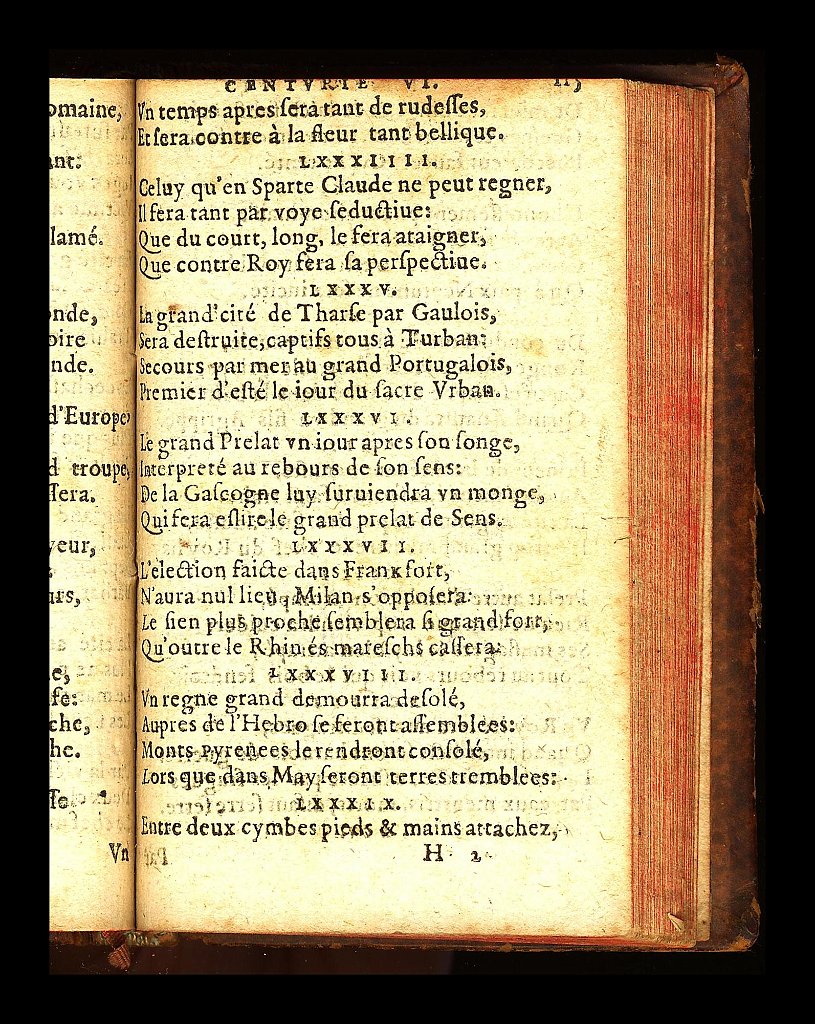 omaine,
ant:
lamé.
onde,
oire
nde.
d'Europe
d troupe,
ſſera.
yeur,
urs,
e,
fe:
che,
he.
ſſe
Vn
CENTVRIE VI. 115
Vn temps apres ſera tant de rudeſſes,
Et ſera contre à la fleur tant bellique.
LXXXIIII.
Celuy qu'en Sparte Claude ne peut regner,
Il fera tant par voye ſeductiue:
Que du court, long, le fera ataigner,
Que contre Roy fera ſa perſpectiue.
LXXXV.
La grand'cité de Tharſe par Gaulois,
Sera deſtruite, captifs tous à Turban:
Secours par mer au grand Portugalois,
Premier d'eſté le iour du ſacre Vrban.
LXXXVI.
Le grand Prelat vn iour apres ſon ſonge,
Interpreté au rebours de ſon ſens:
De la Gaſcogne luy ſuruiendra vn monge,
Qui fera eſlire le grand prelat de Sens.
LXXXVII.
L'election faicte dans Frankfort,
N'aura nul lieu, Milan s'oppoſera:
Le ſien plus proche ſemblera ſi grand fort,
Qu'outre le Rhin és mareſchs caſſera:
LXXXVIII.
Vn regne grand demourra deſolé,
Aupres de l'Hebro ſe feront aſſemblees:
Monts Pyrenees le rendront conſolé,
Lors que dans May ſeront terres tremblees:
LXXXIX.
Entre deux cymbes pieds & mains attachez,
H 2